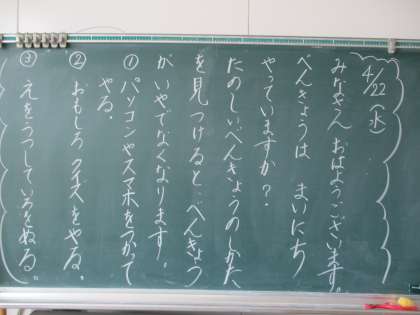 4/22(水)
みなさん おはようございます。
べんきょうは まいにち
やっていますか?
たのしいべんきょうのしかた
を見つけると、べんきょう
がいやでなくなります。
① パソコンやスマホをつかって
やる。
② おもしろクイズをやる。
③ えをうつしていろをぬる。